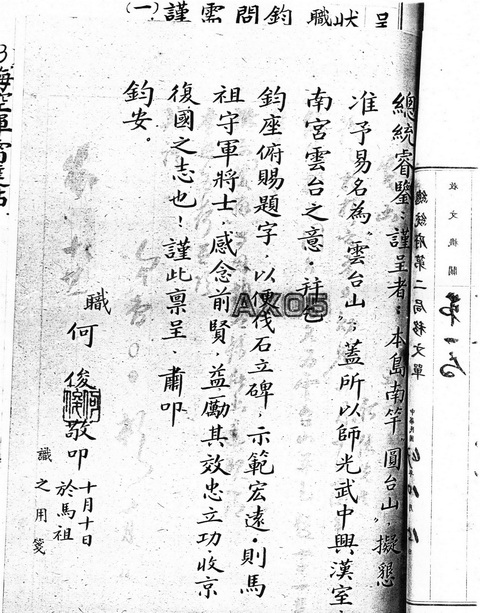 呈狀職鈞問需謹(一)
總統睿鑒：謹呈者：本島南竿“圓台山”，擬懇
准予易名為“雲台山”，蓋所以師光武中興漢室，
南宮雲台之意。并
鈞座俯賜題字，以便伐石立碑，示範宏遠。則馬
祖守軍將士，感念前賢，益勵其效忠立功、收京
復國之志也！謹此禀呈、肅叩
鈞安。
職 何俊 敬叩 十月十日
於馬祖
總統府第二局移文單
收文機關
中華民國
識之用箋
AX05